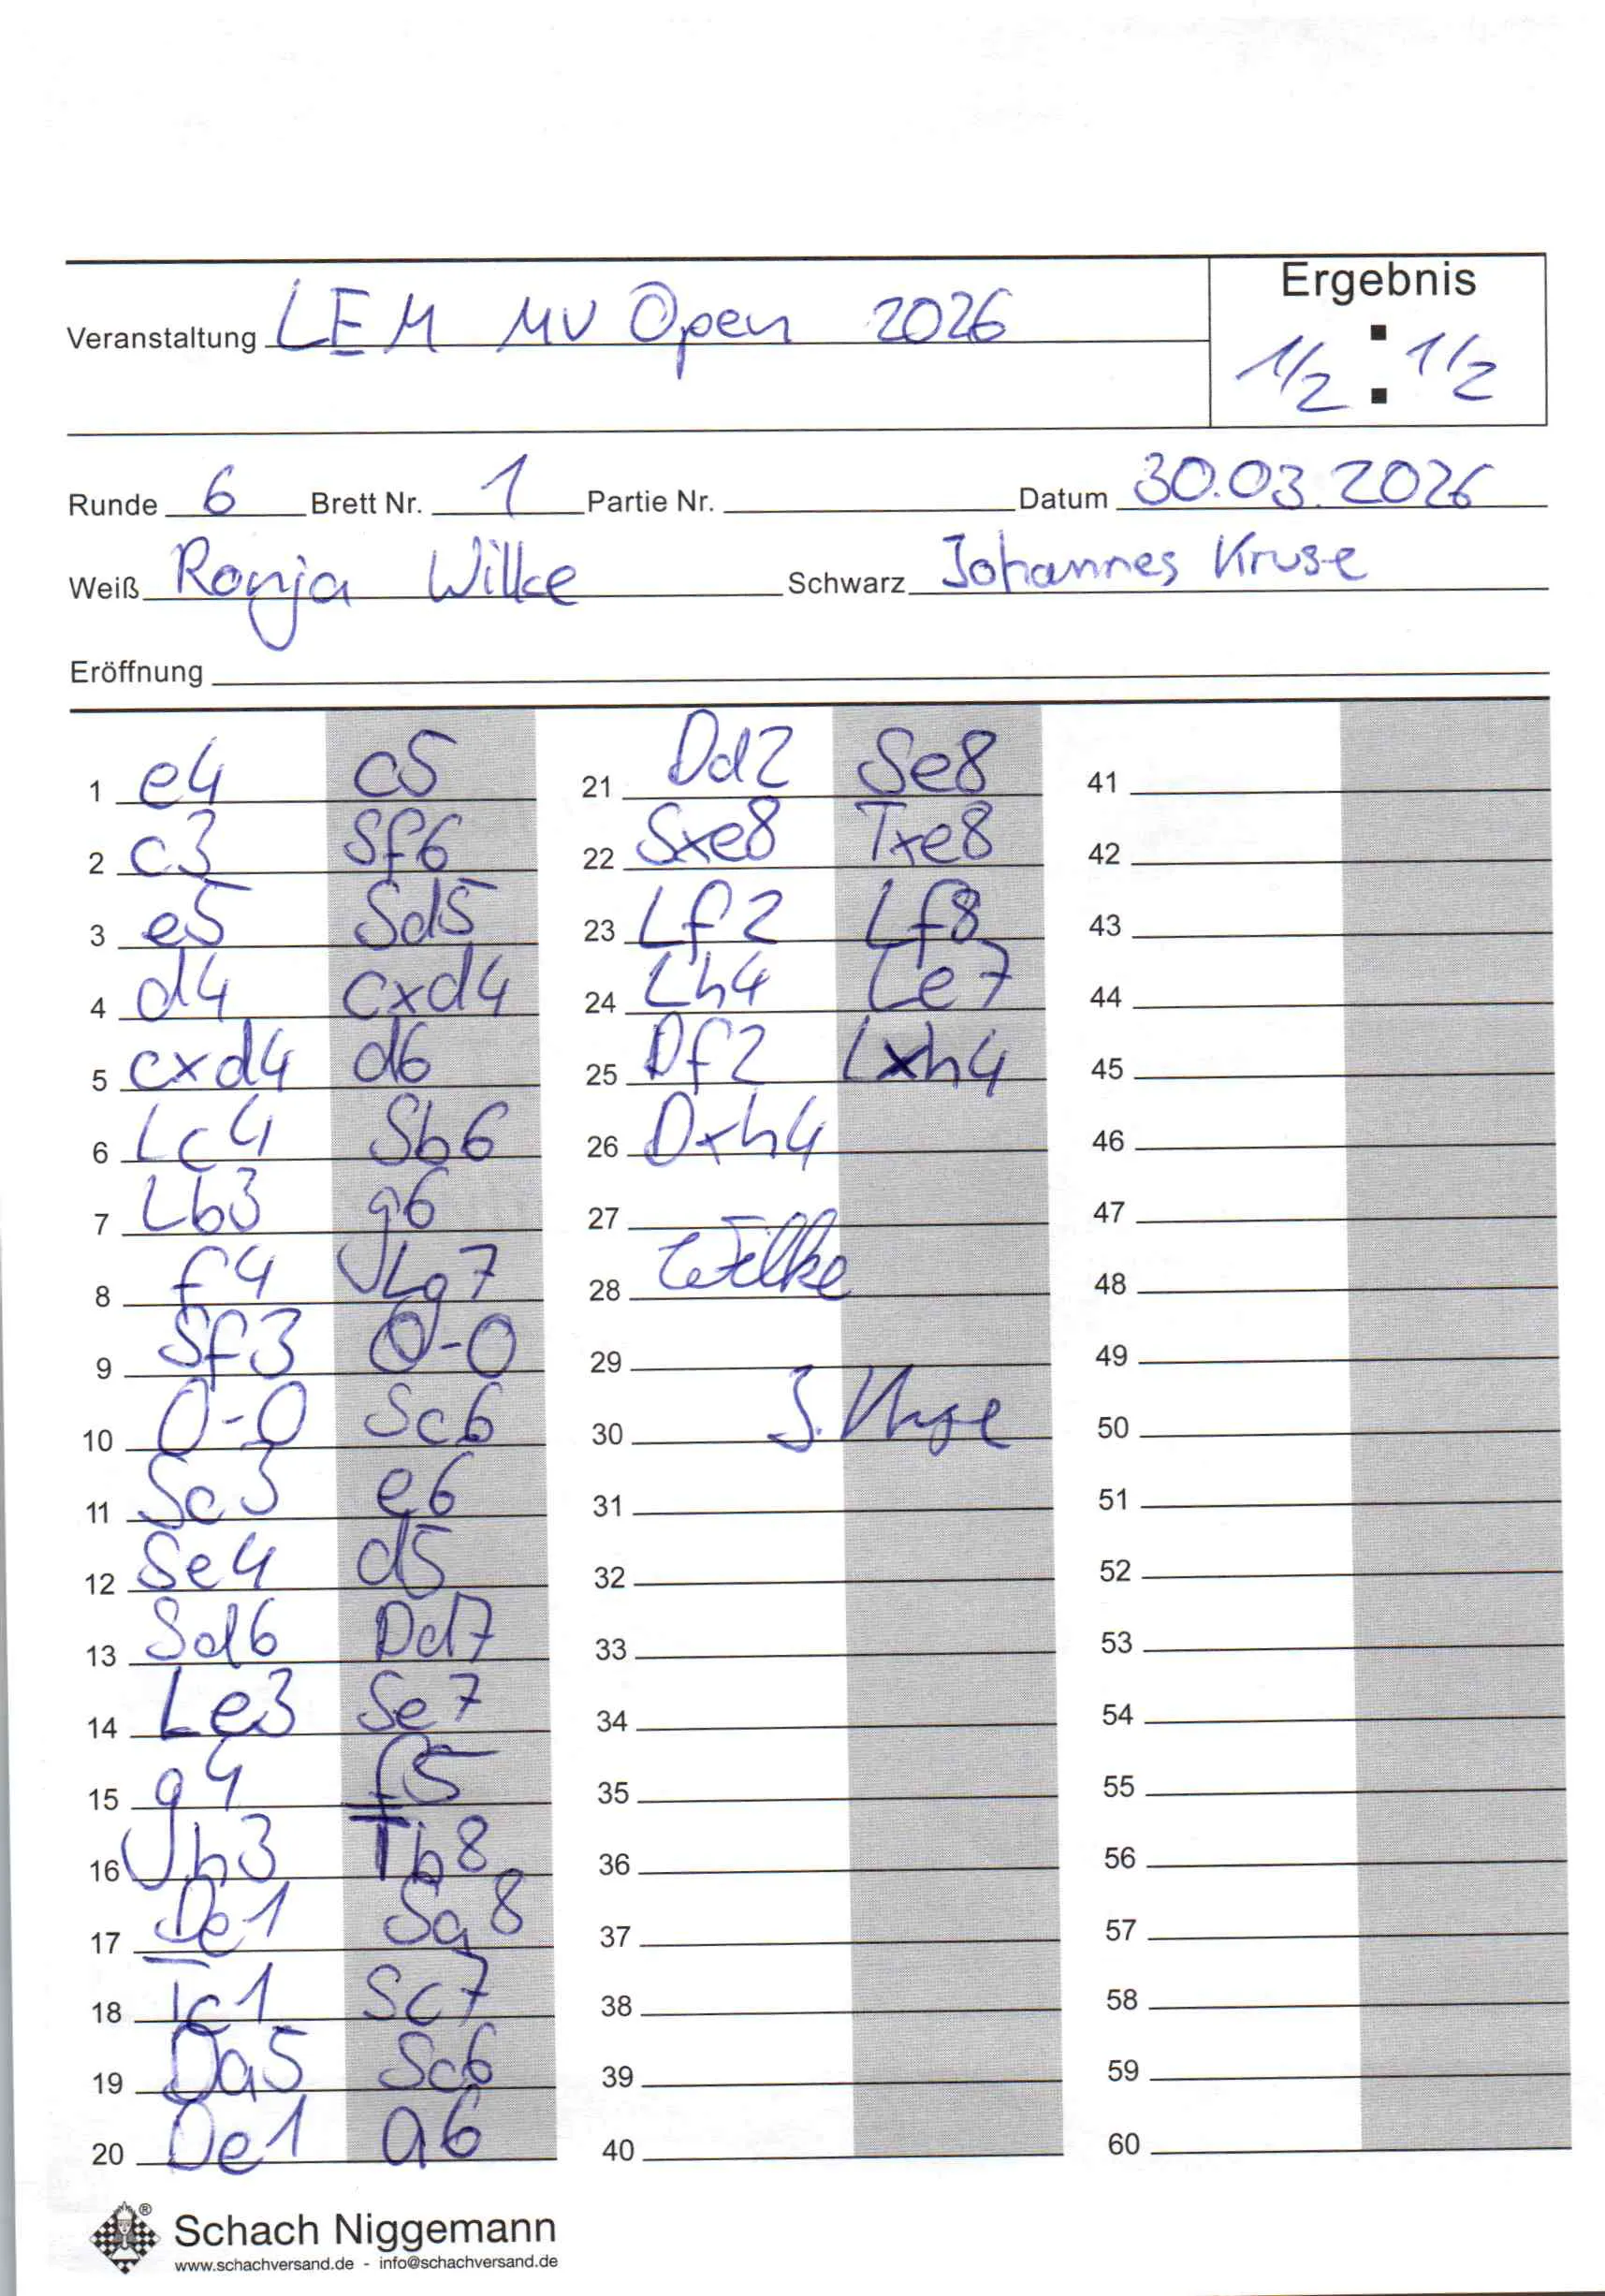 Ergebnis
Veranstaltung LEM MV Open 2026
1/2 : 1/2
Runde 6 Brett Nr. 1 Partie Nr. Datum 30.03.2026
Weiß Ronja Wilke Schwarz Johannes Kruse
Eröffnung
1 e4 c5
2 c3 Sf6
3 e5 Sd5
4 d4 cxd4
5 cxd4 d6
6 Lc4 Sb6
7 Lb3 g6
8 f4 Lg7
9 Sf3 0-0
10 0-0 Sc6
11 Sc3 e6
12 Se4 d5
13 Sd6 Dd7
14 Le3 Se7
15 g4 f5
16 h3 Tb8
17 De1 Sa8
18 Tc1 Sc7
19 Da5 Sc6
20 De1 a6
21 Dd2 Se8
22 Sxe8 Txe8
23 Lf2 Lf8
24 Lh4 Le7
25 Df2 Lxh4
26 Dxh4
27
28 Wilke
29
30 J. Kruse
31
32
33
34
35
36
37
38
39
40
41
42
43
44
45
46
47
48
49
50
51
52
53
54
55
56
57
58
59
60
Schach Niggemann ®
www.schachversand.de - info@schachversand.de